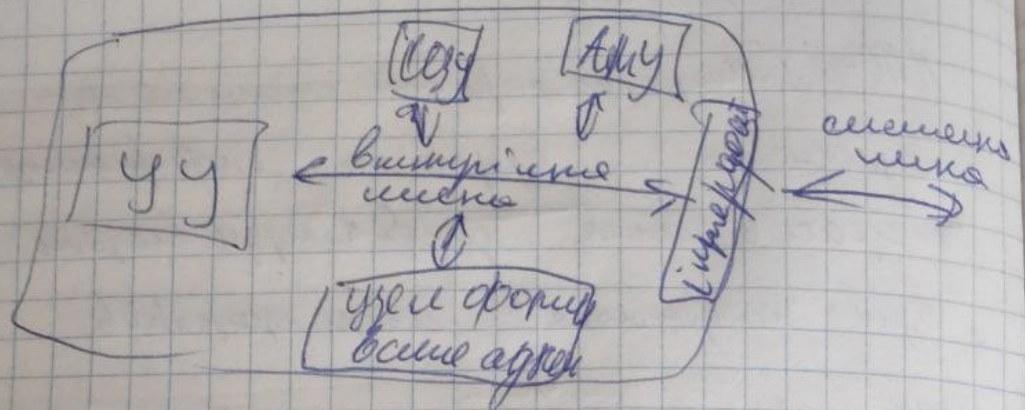 СОЗУ
АЛУ
УУ
внутрішня
шина
інтерфейс
системна
шина
узел форми
вание адрес